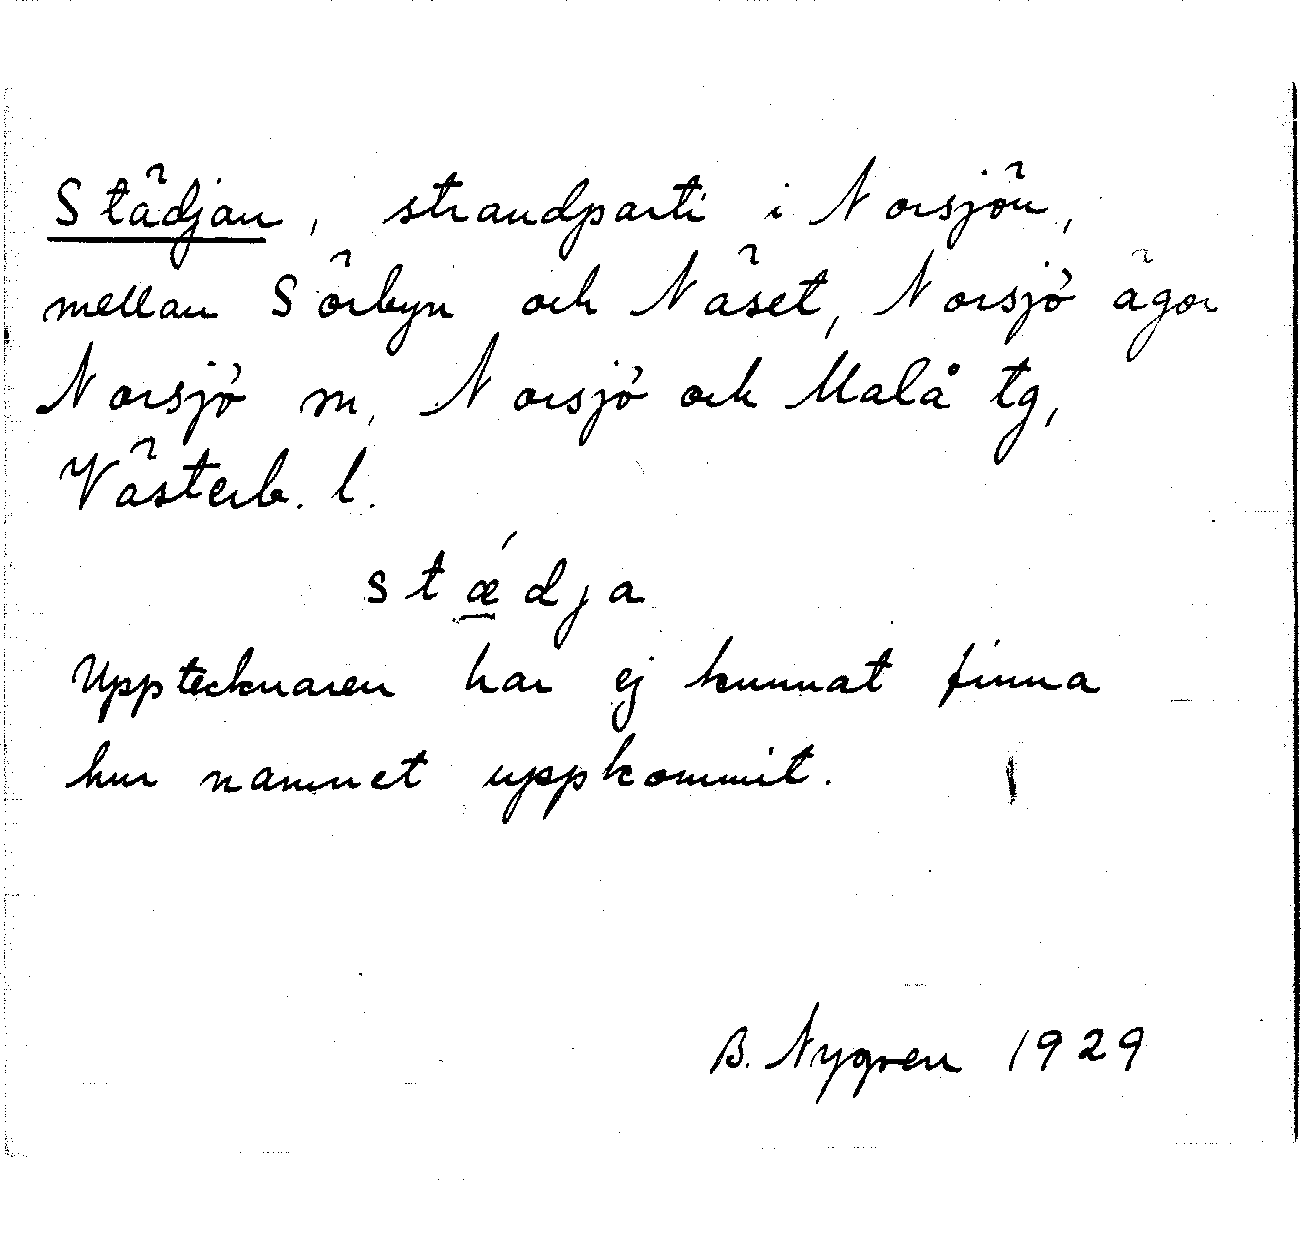 Städjan, strandparti i Norsjön,
mellan Sörbyn och Näset, Norsjö ägor
Norsjö sn, Norsjö och Malå tg,
Västerb. l.
stǽdja
Upptecknaren har ej kunnat finna
hur namnet uppkommit.
B. Nygren 1929